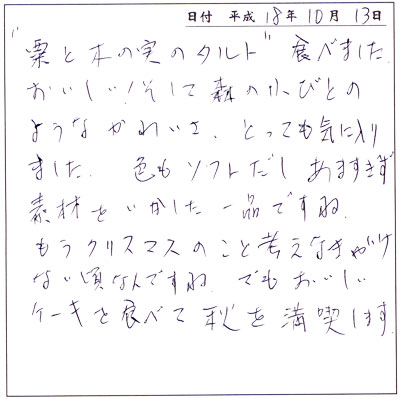 日付 平成 18年 10月 13日
"栗と木の実のタルト" 食べました.
おいしい!そして森の小びとの
ようなかわいさ. とっても気に入り
ました. 色もソフトだし あますぎず
素材をいかした一品ですね.
もうクリスマスのこと考えなきゃいけ
ない頃なんですね. でもおいしい
ケーキを食べて 秋を満喫します.